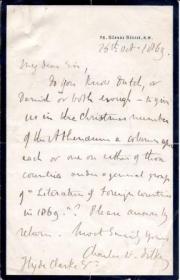 76, SLOANE STREET, S.W.
26th Oct. 1869.
My dear Sir,
Do you know Dutch, or
Danish or both enough to give
us in the Christmas number
of the Athenæum a column upon
each or one on either of those
countries under a general group
of "Literature of Foreign Countries
in 1869"? Please answer by
return. Most truly yours
Charles W. Dilke
Hyde Clarke Esq